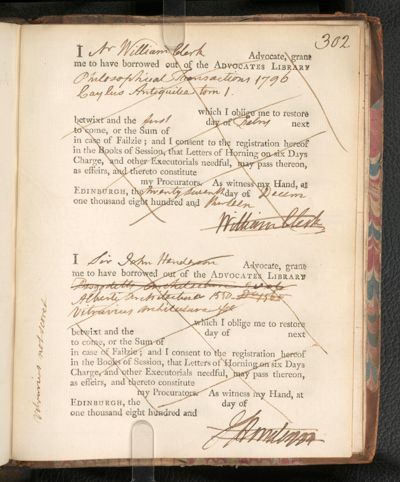 302
I Mr William Clerk Advocate, grant
me to have borrowed out of the ADVOCATES LIBRARY
Philosophical Transactions 1796
Caylus Antiquites tom 1.
which I oblige me to restore
betwixt and the first day of next
to come, or the Sum of
in case of Failzie; and I consent to the registration hereof
in the Books of Session, that Letters of Horning on six Days
Charge, and other Executorials needful, may pass thereon,
as effeirs, and thereto constitute
my Procurators. As witness my Hand, at
EDINBURGH, the twenty seventh day of Decem
one thousand eight hundred and
William Clerk
I Sir John Henderson Advocate, grant
me to have borrowed out of the ADVOCATES LIBRARY
Alberti Architectura
Vitruvius Architectura
which I oblige me to restore
betwixt and the day of next
to come, or the Sum of
in case of Failzie; and I consent to the registration hereof
in the Books of Session, that Letters of Horning on six Days
Charge, and other Executorials needful, may pass thereon,
as effeirs, and thereto constitute
my Procurators. As witness my Hand, at
EDINBURGH, the day of
one thousand eight hundred and
J Henderson
Vitruvius not sent